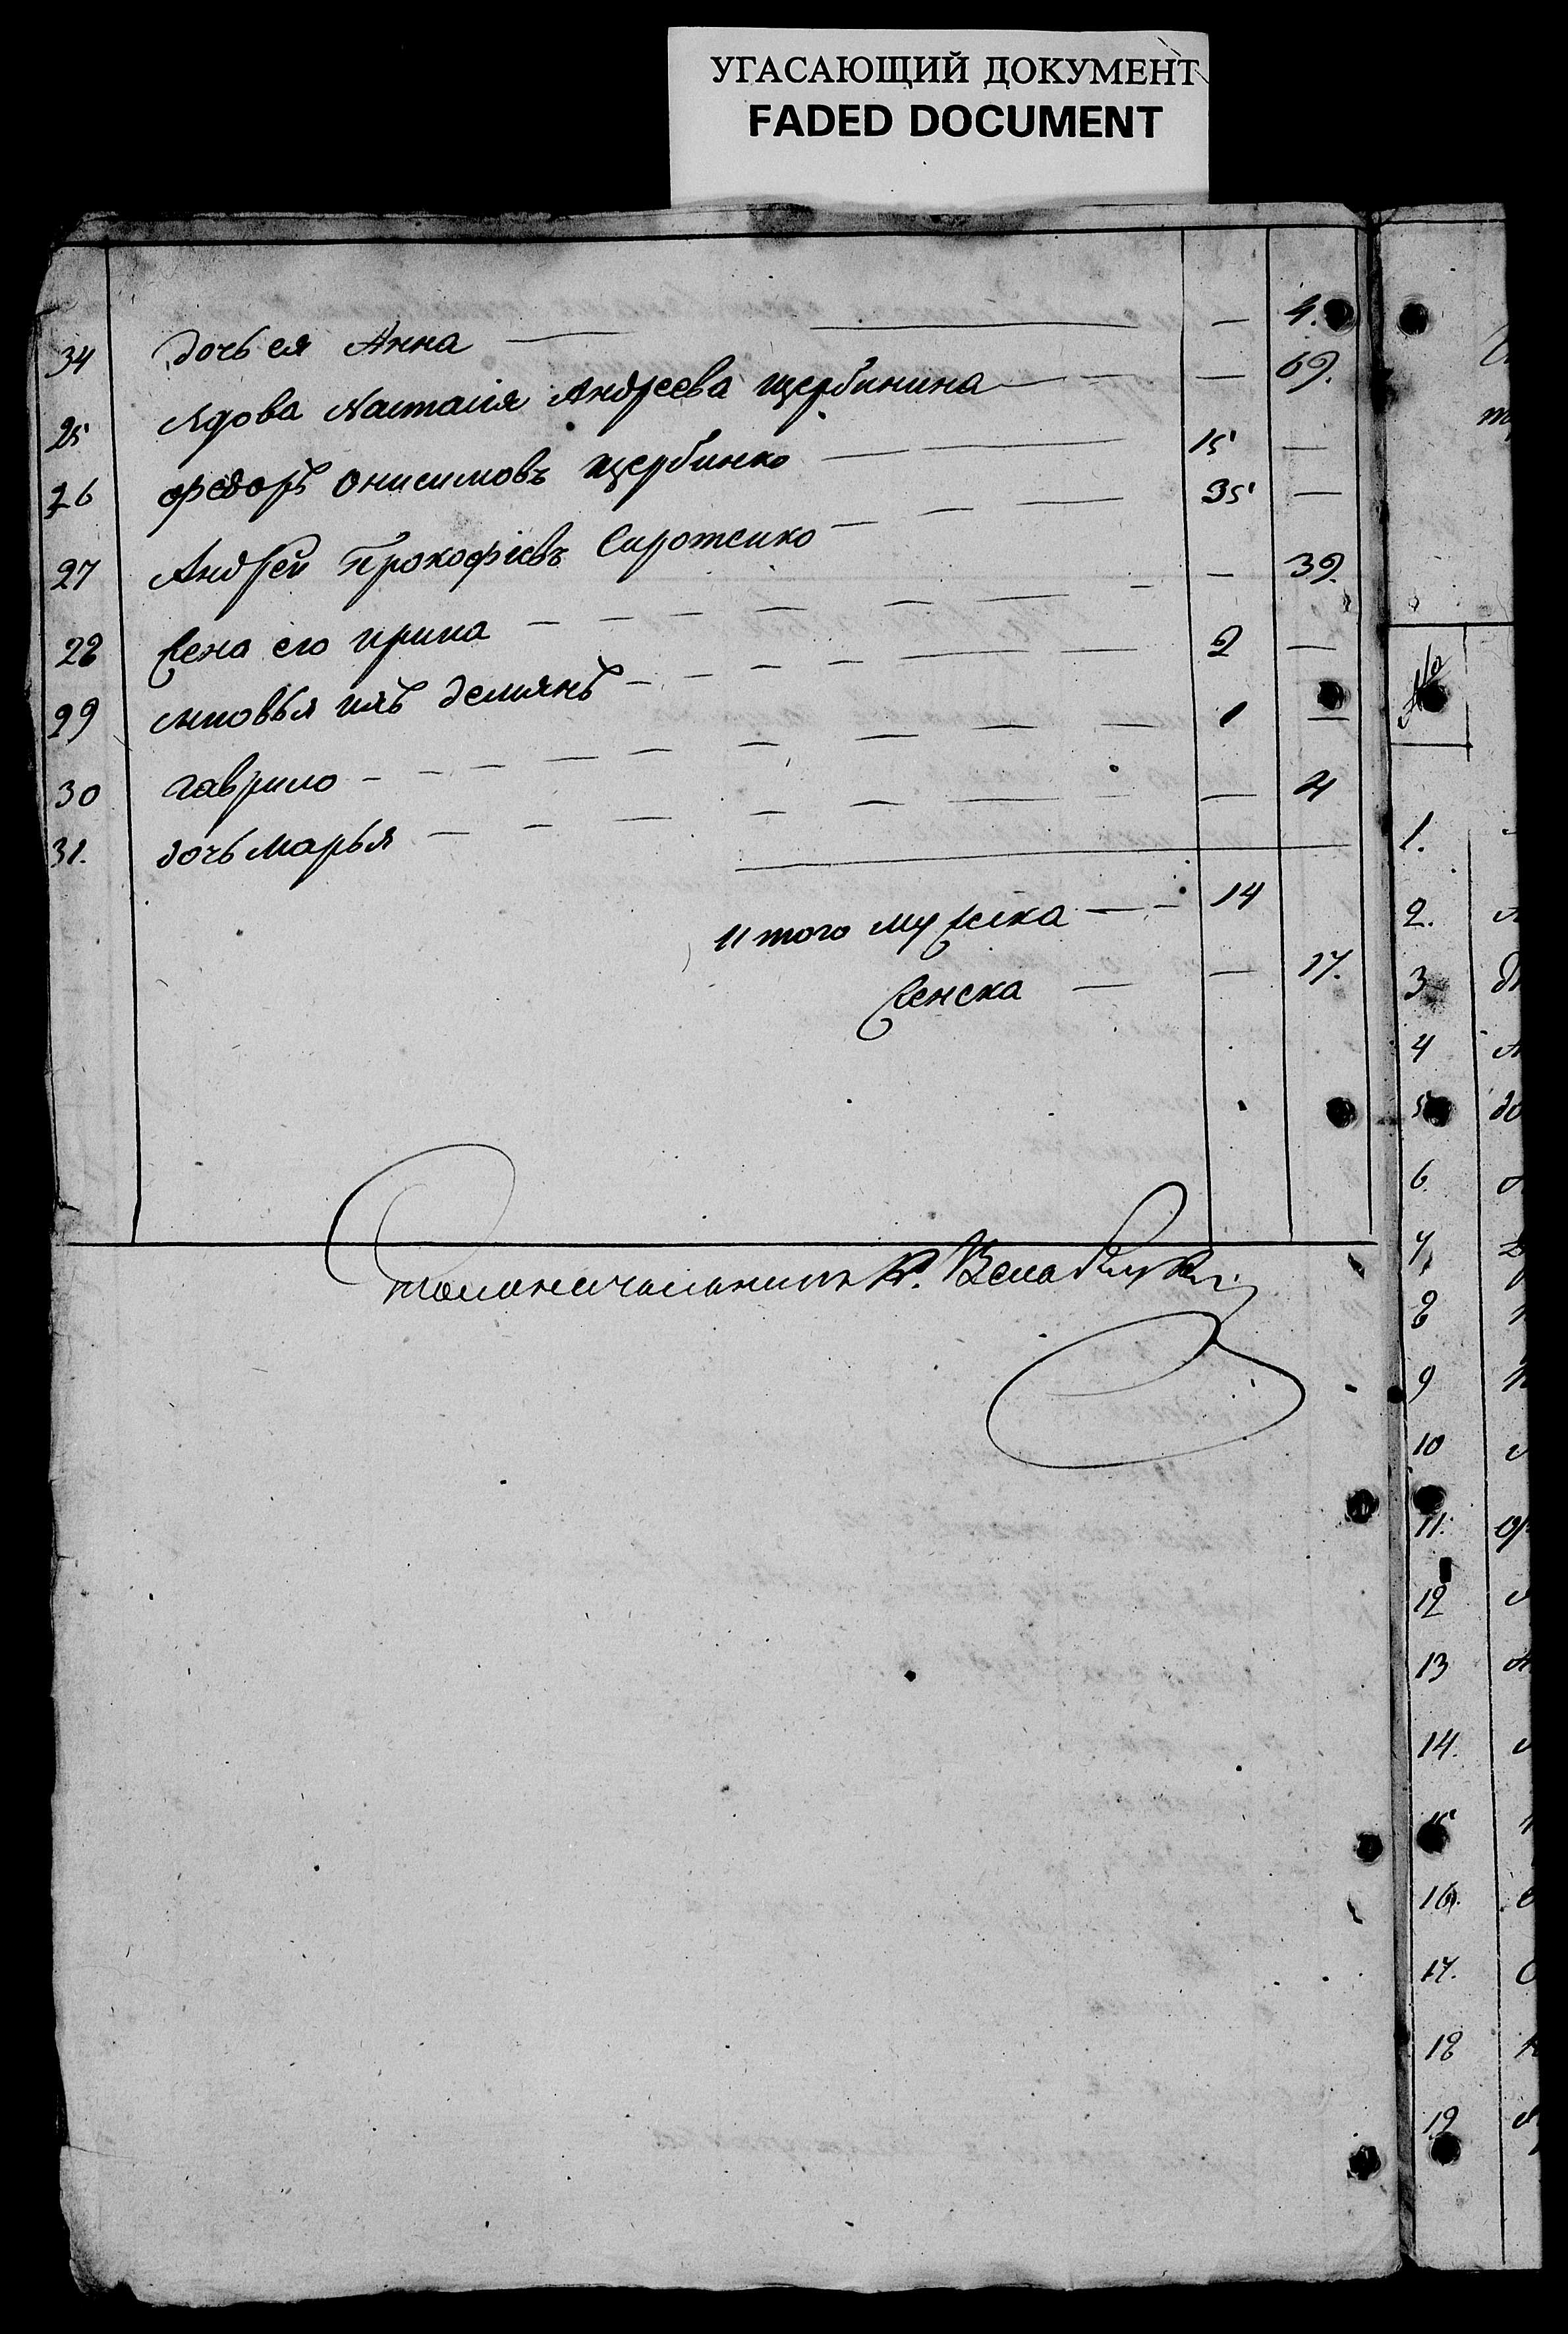 УГАСАЮЩИЙ ДОКУМЕНТ
FADED DOCUMENT
34 дочь ея Анна — — — 4.
25 Вдова Наталия Андреева Щербинина — — — 69.
26 Федоръ Онисимовъ Щербинко — — 15 —
27 Андрей Прокофіевъ Сиротенко — — — 35 —
28 Жена его Ирина — — — — — — — — 39.
29 сыновья ихъ Демянъ — — — — — — 2 —
30 Гаврило — — — — — — — — — 1 —
31. дочь Марья — — — — — — — — 4
Итого мужеска — — 14
Женска — — 17.
Столоначальникъ
№
1.
2.
3
4
5
6
7
8
9
10
11.
12
13
14.
15
16.
17.
18
19